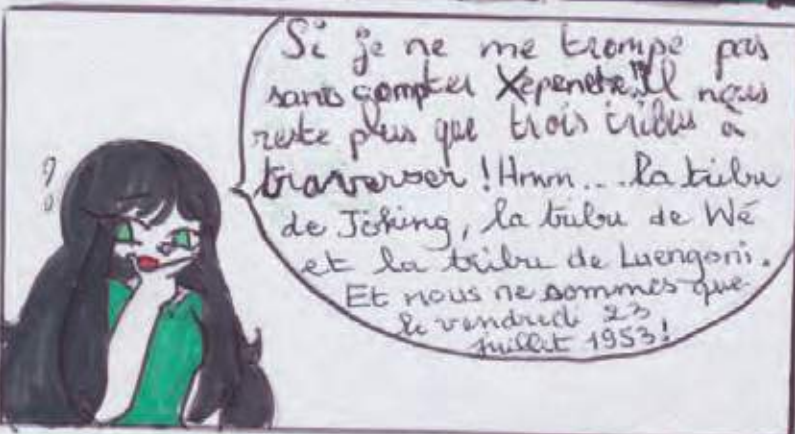 Si je ne me trompe pas
sans compter Xepenehe. Il nous
reste plus que trois tribus à
traverser ! Hmm... la tribu
de Joking, la tribu de Wé
et la tribu de Luengoni.
Et nous ne sommes que
le vendredi 23
juillet 1953 !